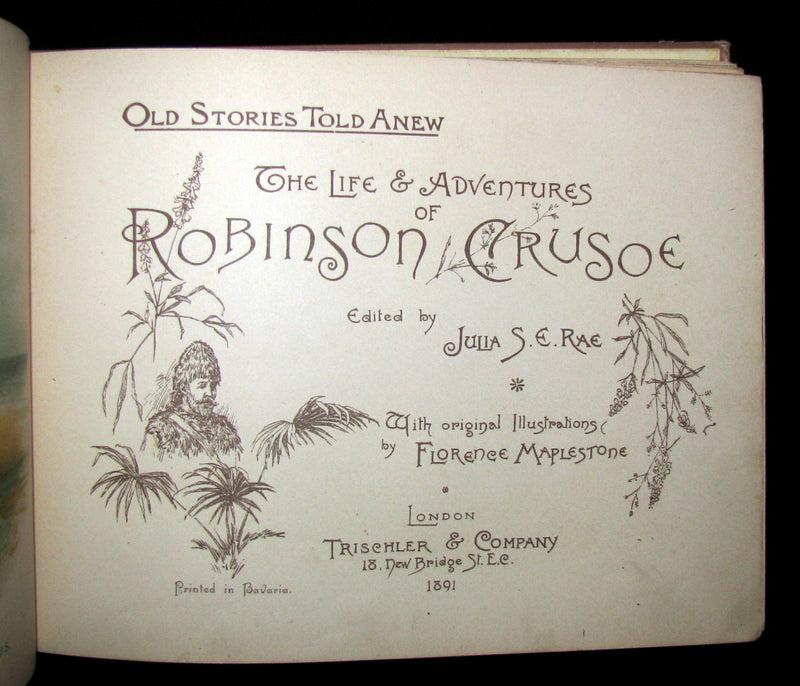 Old Stories Told Anew
The Life & Adventures
of
Robinson Crusoe
Edited by
Julia S. E. Rae
With original Illustrations
by Florence Maplestone
London
Trischler & Company
18, New Bridge St. E.C.
1891
Printed in Bavaria.